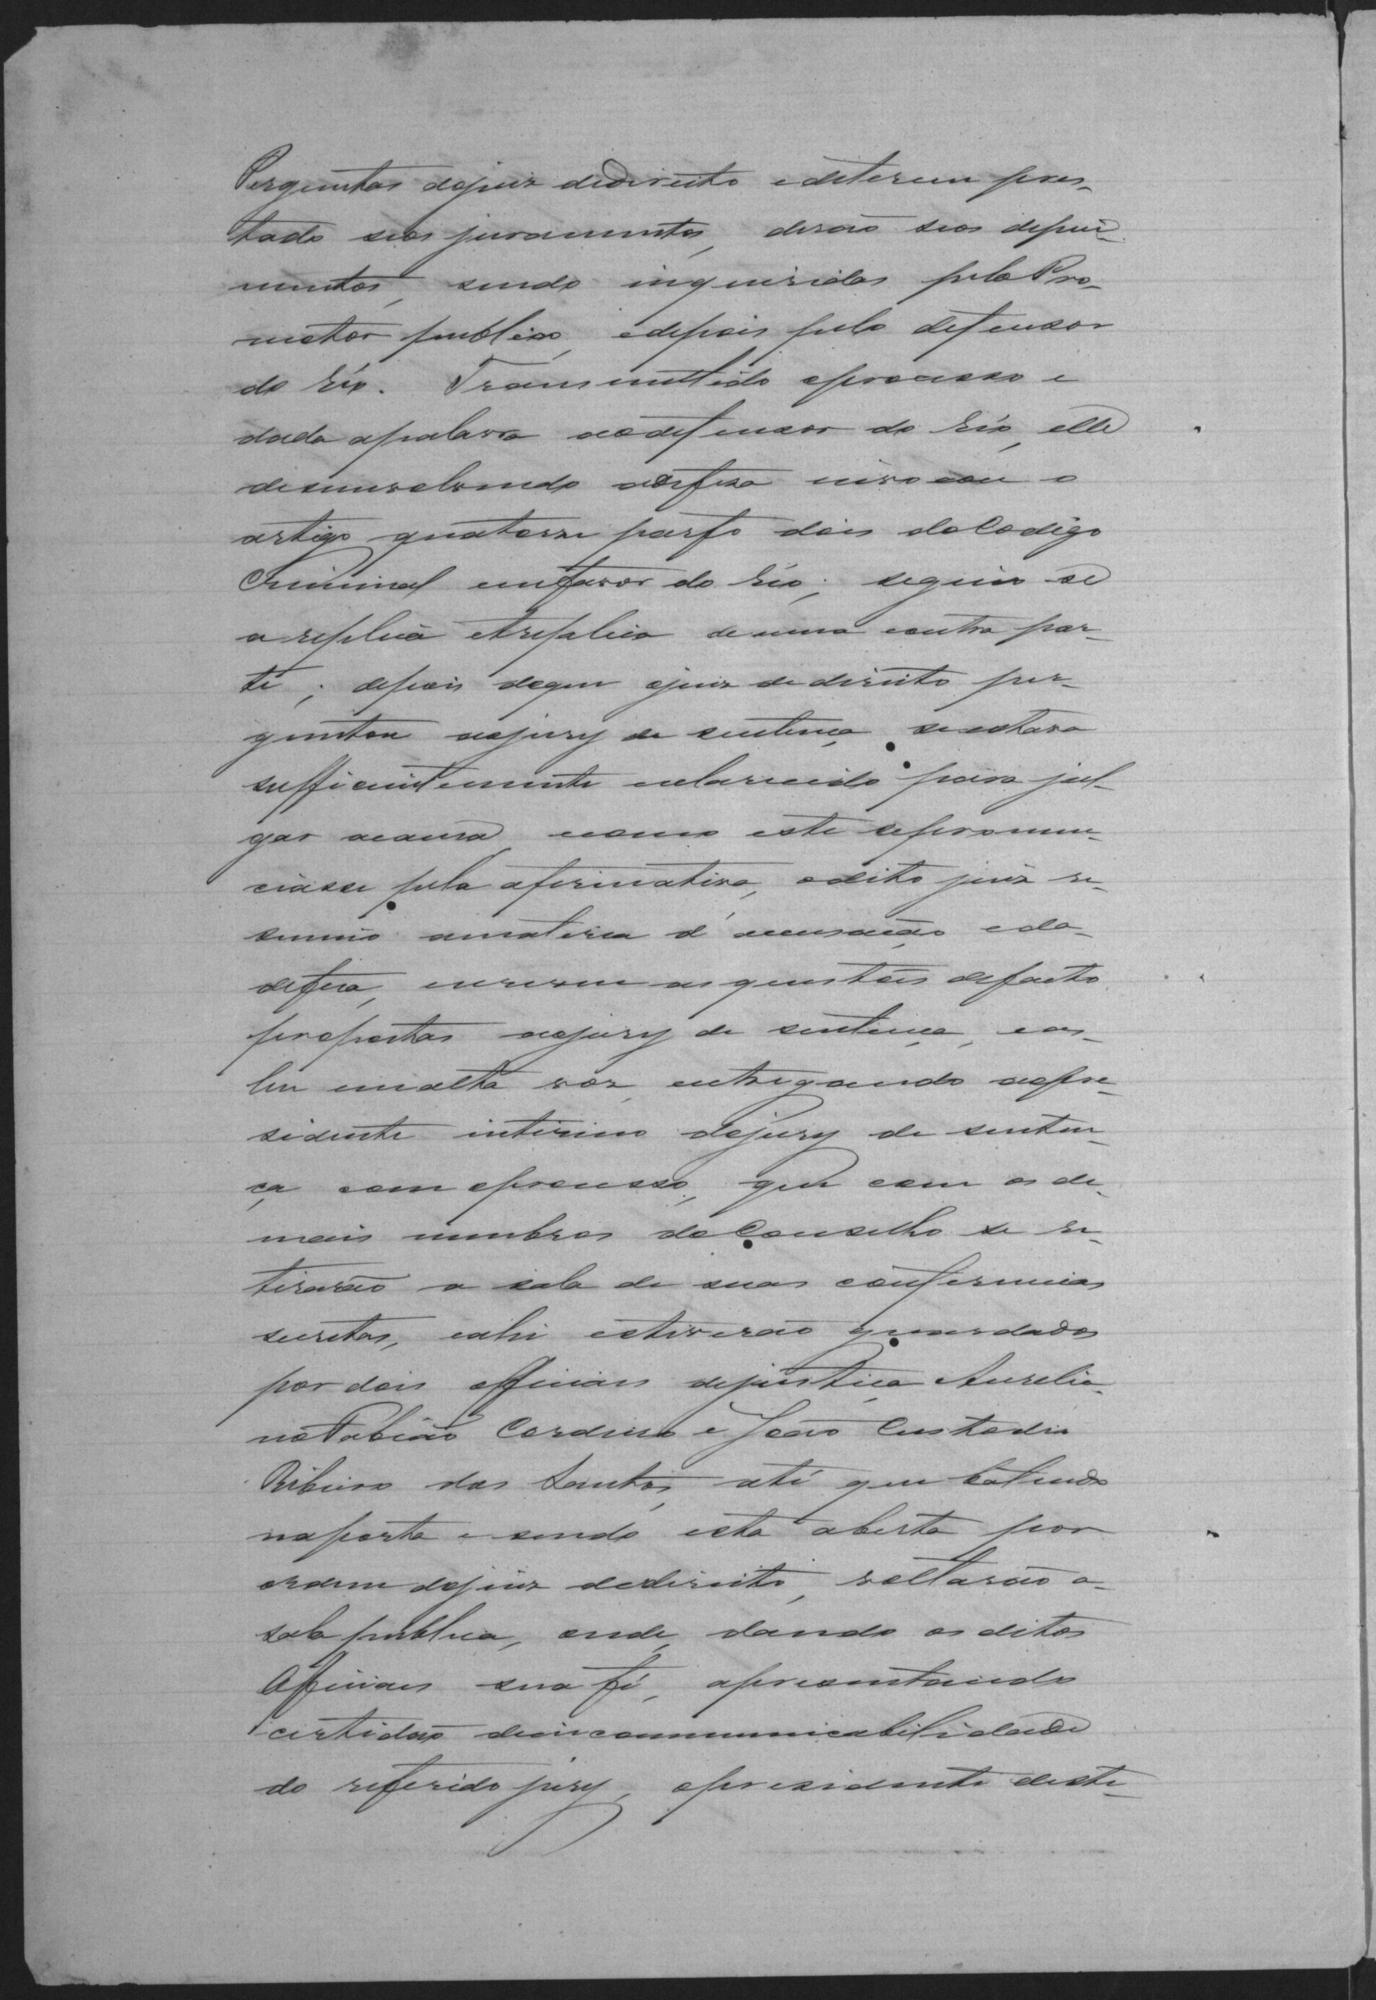 Perguntas dojuiz dedireito edeterem pres-
tado seos juramentos, derão seos depoi-
mentos, sendo inqueridos pelo Pro-
motor publico, edepois pelo defensor
do réo. Transmittido oprocesso e
dada apalavra aodefensor do réo, elle
desenvolvendo adefeza invocou o
artigo quatorze parfo dois do Codigo
Criminal emfavor do réo; seguio se
a replica etreplica de uma eoutra par-
te; depois deque ojuiz de direito per-
guntou aojury de sentença se estava
sufficientemente esclarecido para jul-
gar acausa, ecomo este sepronun-
ciasse pela afirmativa, odito juiz re-
sumio amateria d'accusação eda
defeza, escreveu as questões defacto
propostas aojury de sentença, eas
leu emalta voz, entregando aopre-
sidente interino dojury de senten-
ça com oprocesso, que com os de-
mais membros do Conselho se re-
tirarão a sala de suas conferencias
secretas, eahi estiverão guardados
por dois officiais dejustiça Aurelia-
no Fabião Cardoso e João Custodio
Ribeiro dos Santos, até que batendo
naporta e sendo esta aberta por
ordem dojuiz dedireito, voltarão a
sala publica, onde, dando os ditos
Officiaes sua fé, apresentando
certidão deincommunicabilidade
do referido jury, opresidente deste